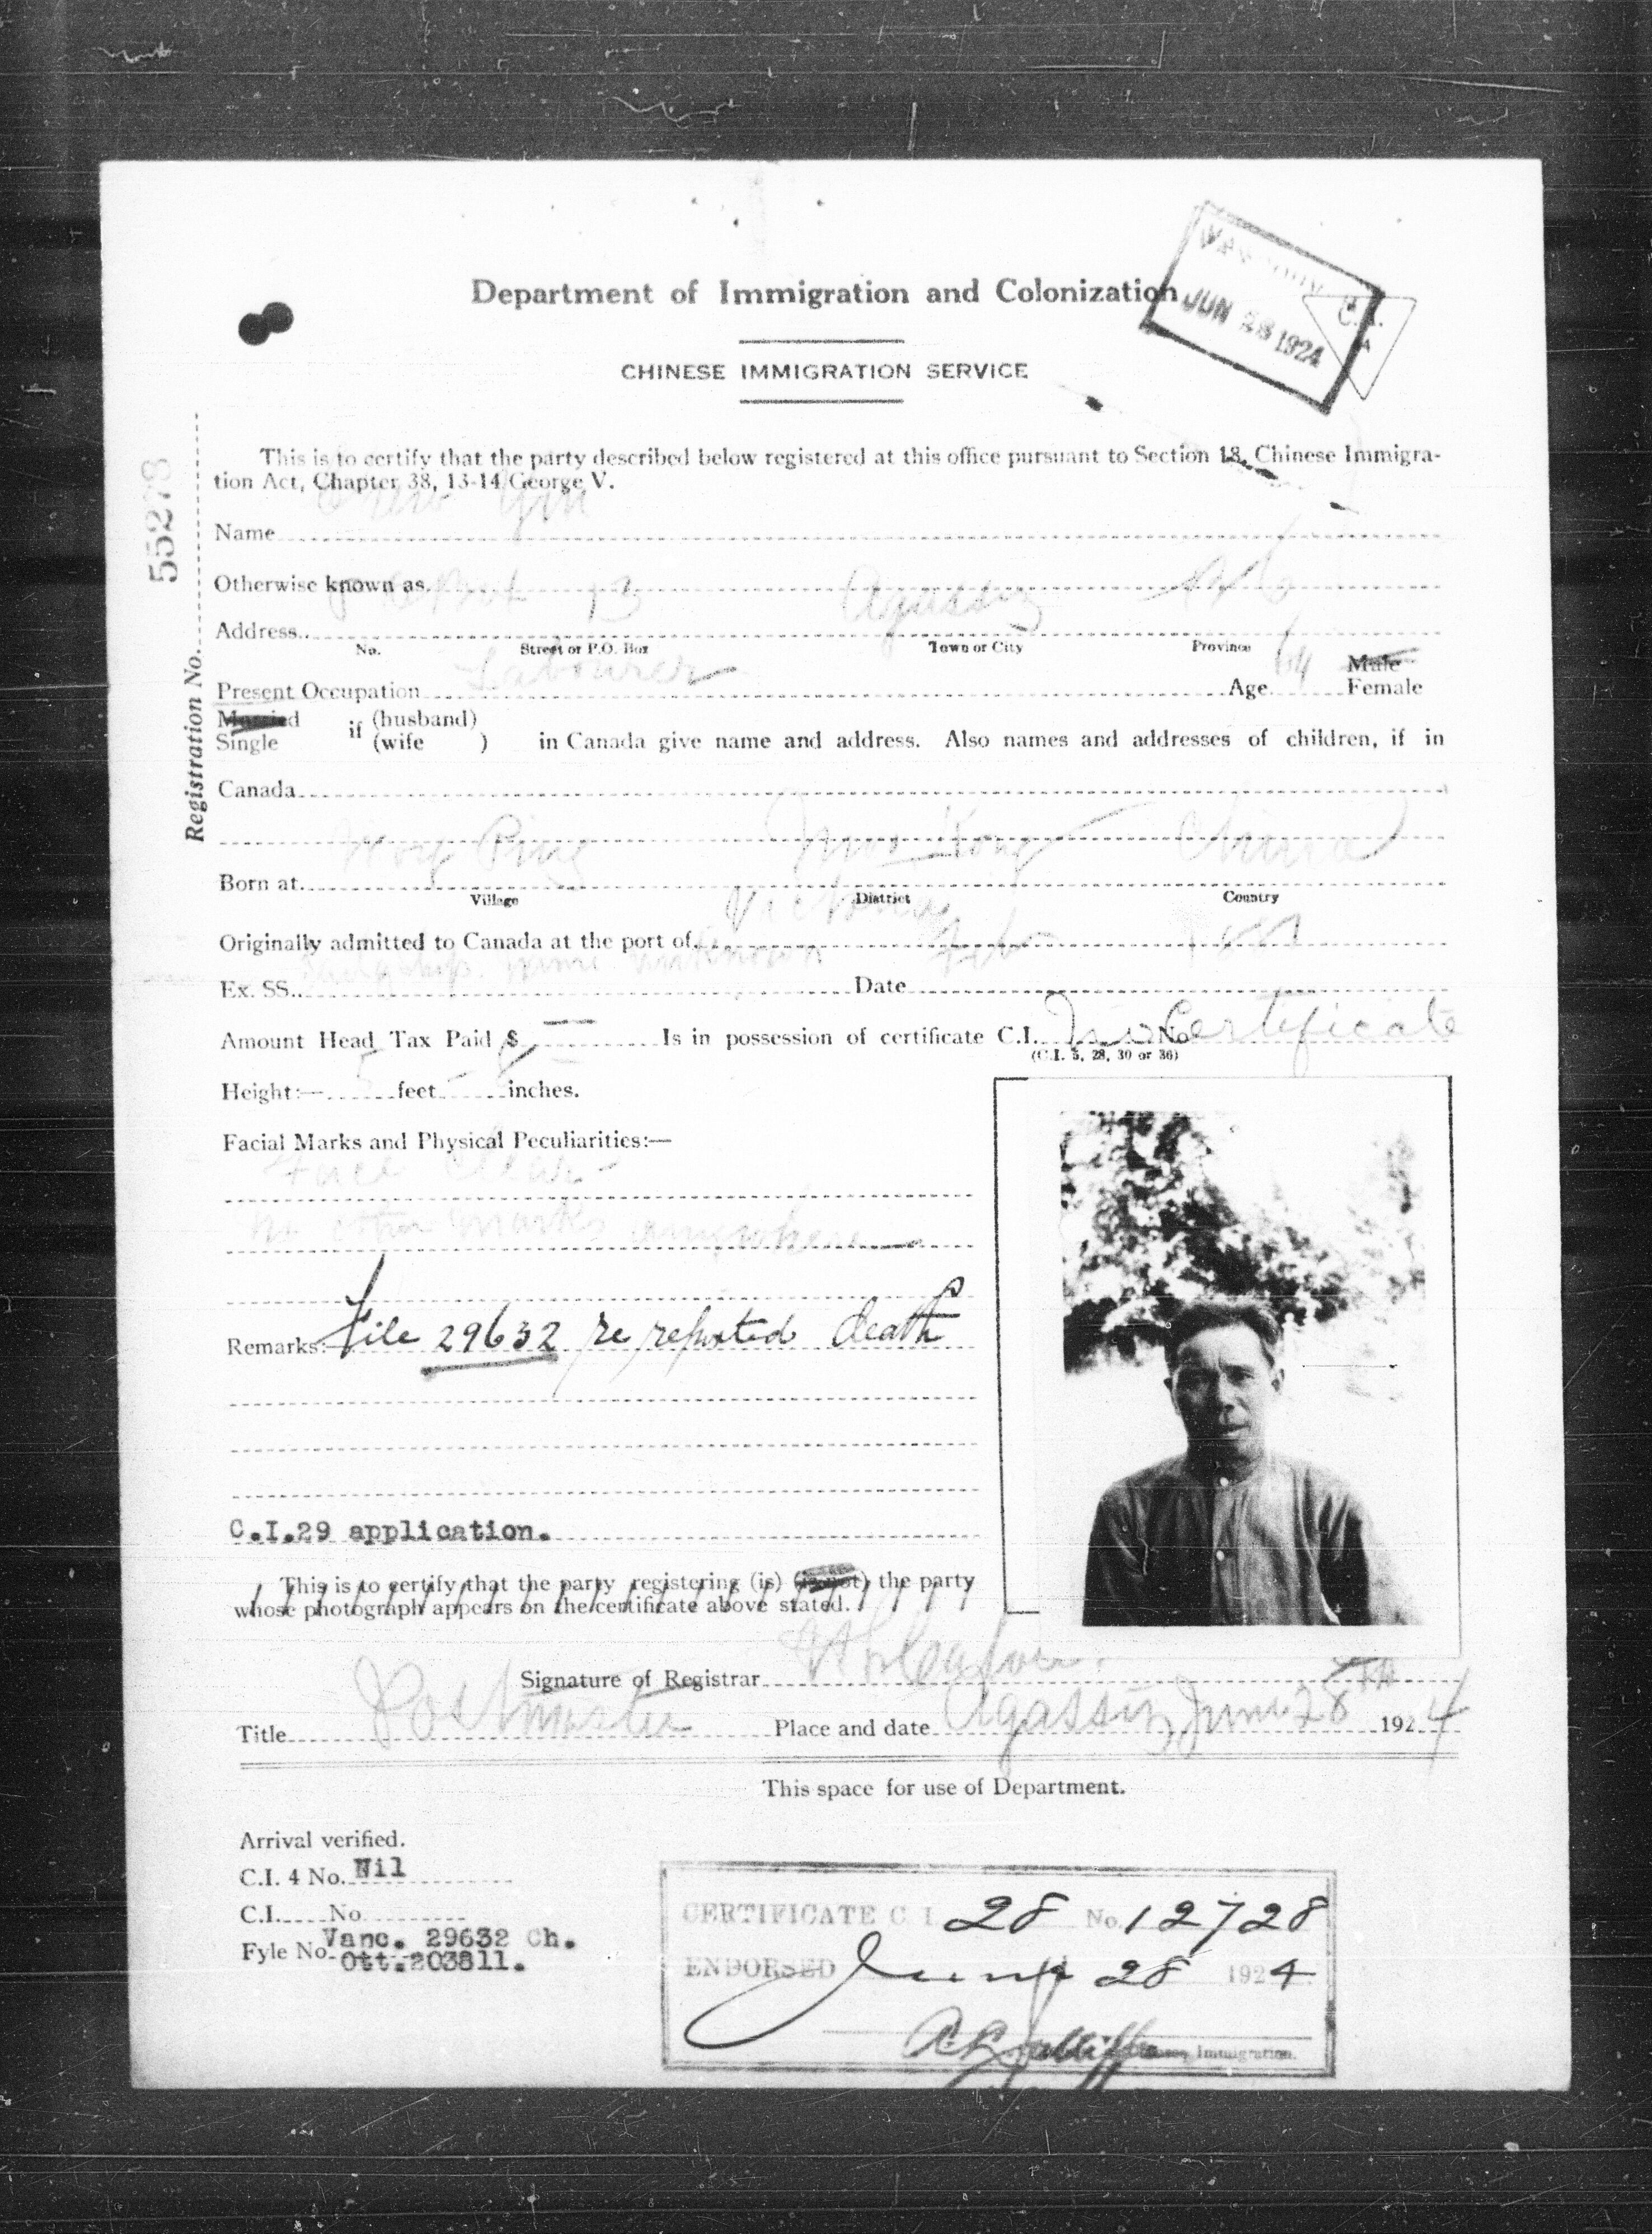 JUN 28 1924
C.I.
Department of Immigration and Colonization
CHINESE IMMIGRATION SERVICE
This is to certify that the party described below registered at this office pursuant to Section 18, Chinese Immigra-
tion Act, Chapter 38, 13-14 George V.
55273
Registration No.
Name
Otherwise known as
13 Agassiz
Address
No. Street or P.O. Box Town or City Province
Labourer 64 Male
Present Occupation Age Female
Married
Single if (husband) (wife ) in Canada give name and address. Also names and addresses of children, if in
Canada
Ping China
Born at
Village District Country
Victoria
Originally admitted to Canada at the port of
Feb
name unknown
Ex. SS. Date
Amount Head Tax Paid $ Is in possession of certificate C.I. No Certificate No
(C.I. 5, 28, 30 or 36)
Height:— 5 feet inches.
Facial Marks and Physical Peculiarities:—
Face clear
no other marks anywhere
Remarks:— File 29632 re reported death
C.I.29 application.
This is to certify that the party registering (is) (is not) the party
whose photograph appears on the certificate above stated.
Signature of Registrar
Title Postmaster Place and date Agassiz June 28th 1924
This space for use of Department.
Arrival verified.
C.I. 4 No. Nil
C.I. No
Fyle No Vanc. 29632 Ch.
Ott. 203811.
CERTIFICATE C.I. 28 No. 12728
ENDORSED June 28 1924
Immigration.